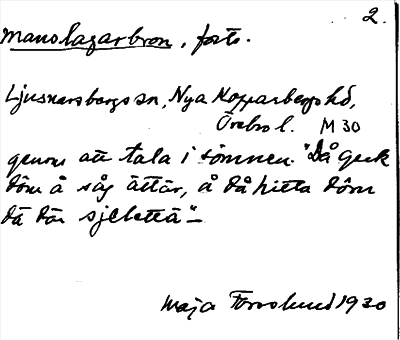 2.
Manslagarbron, forts.
Ljusnarsbergs sn, Nya Kopparbergs hd,
Örebro l. M 30
genom att tala i sömnen. "Då geck
döm å såg ättär, å då hitta döm
dä där sjelettä"—
Maja Forsslund 1930